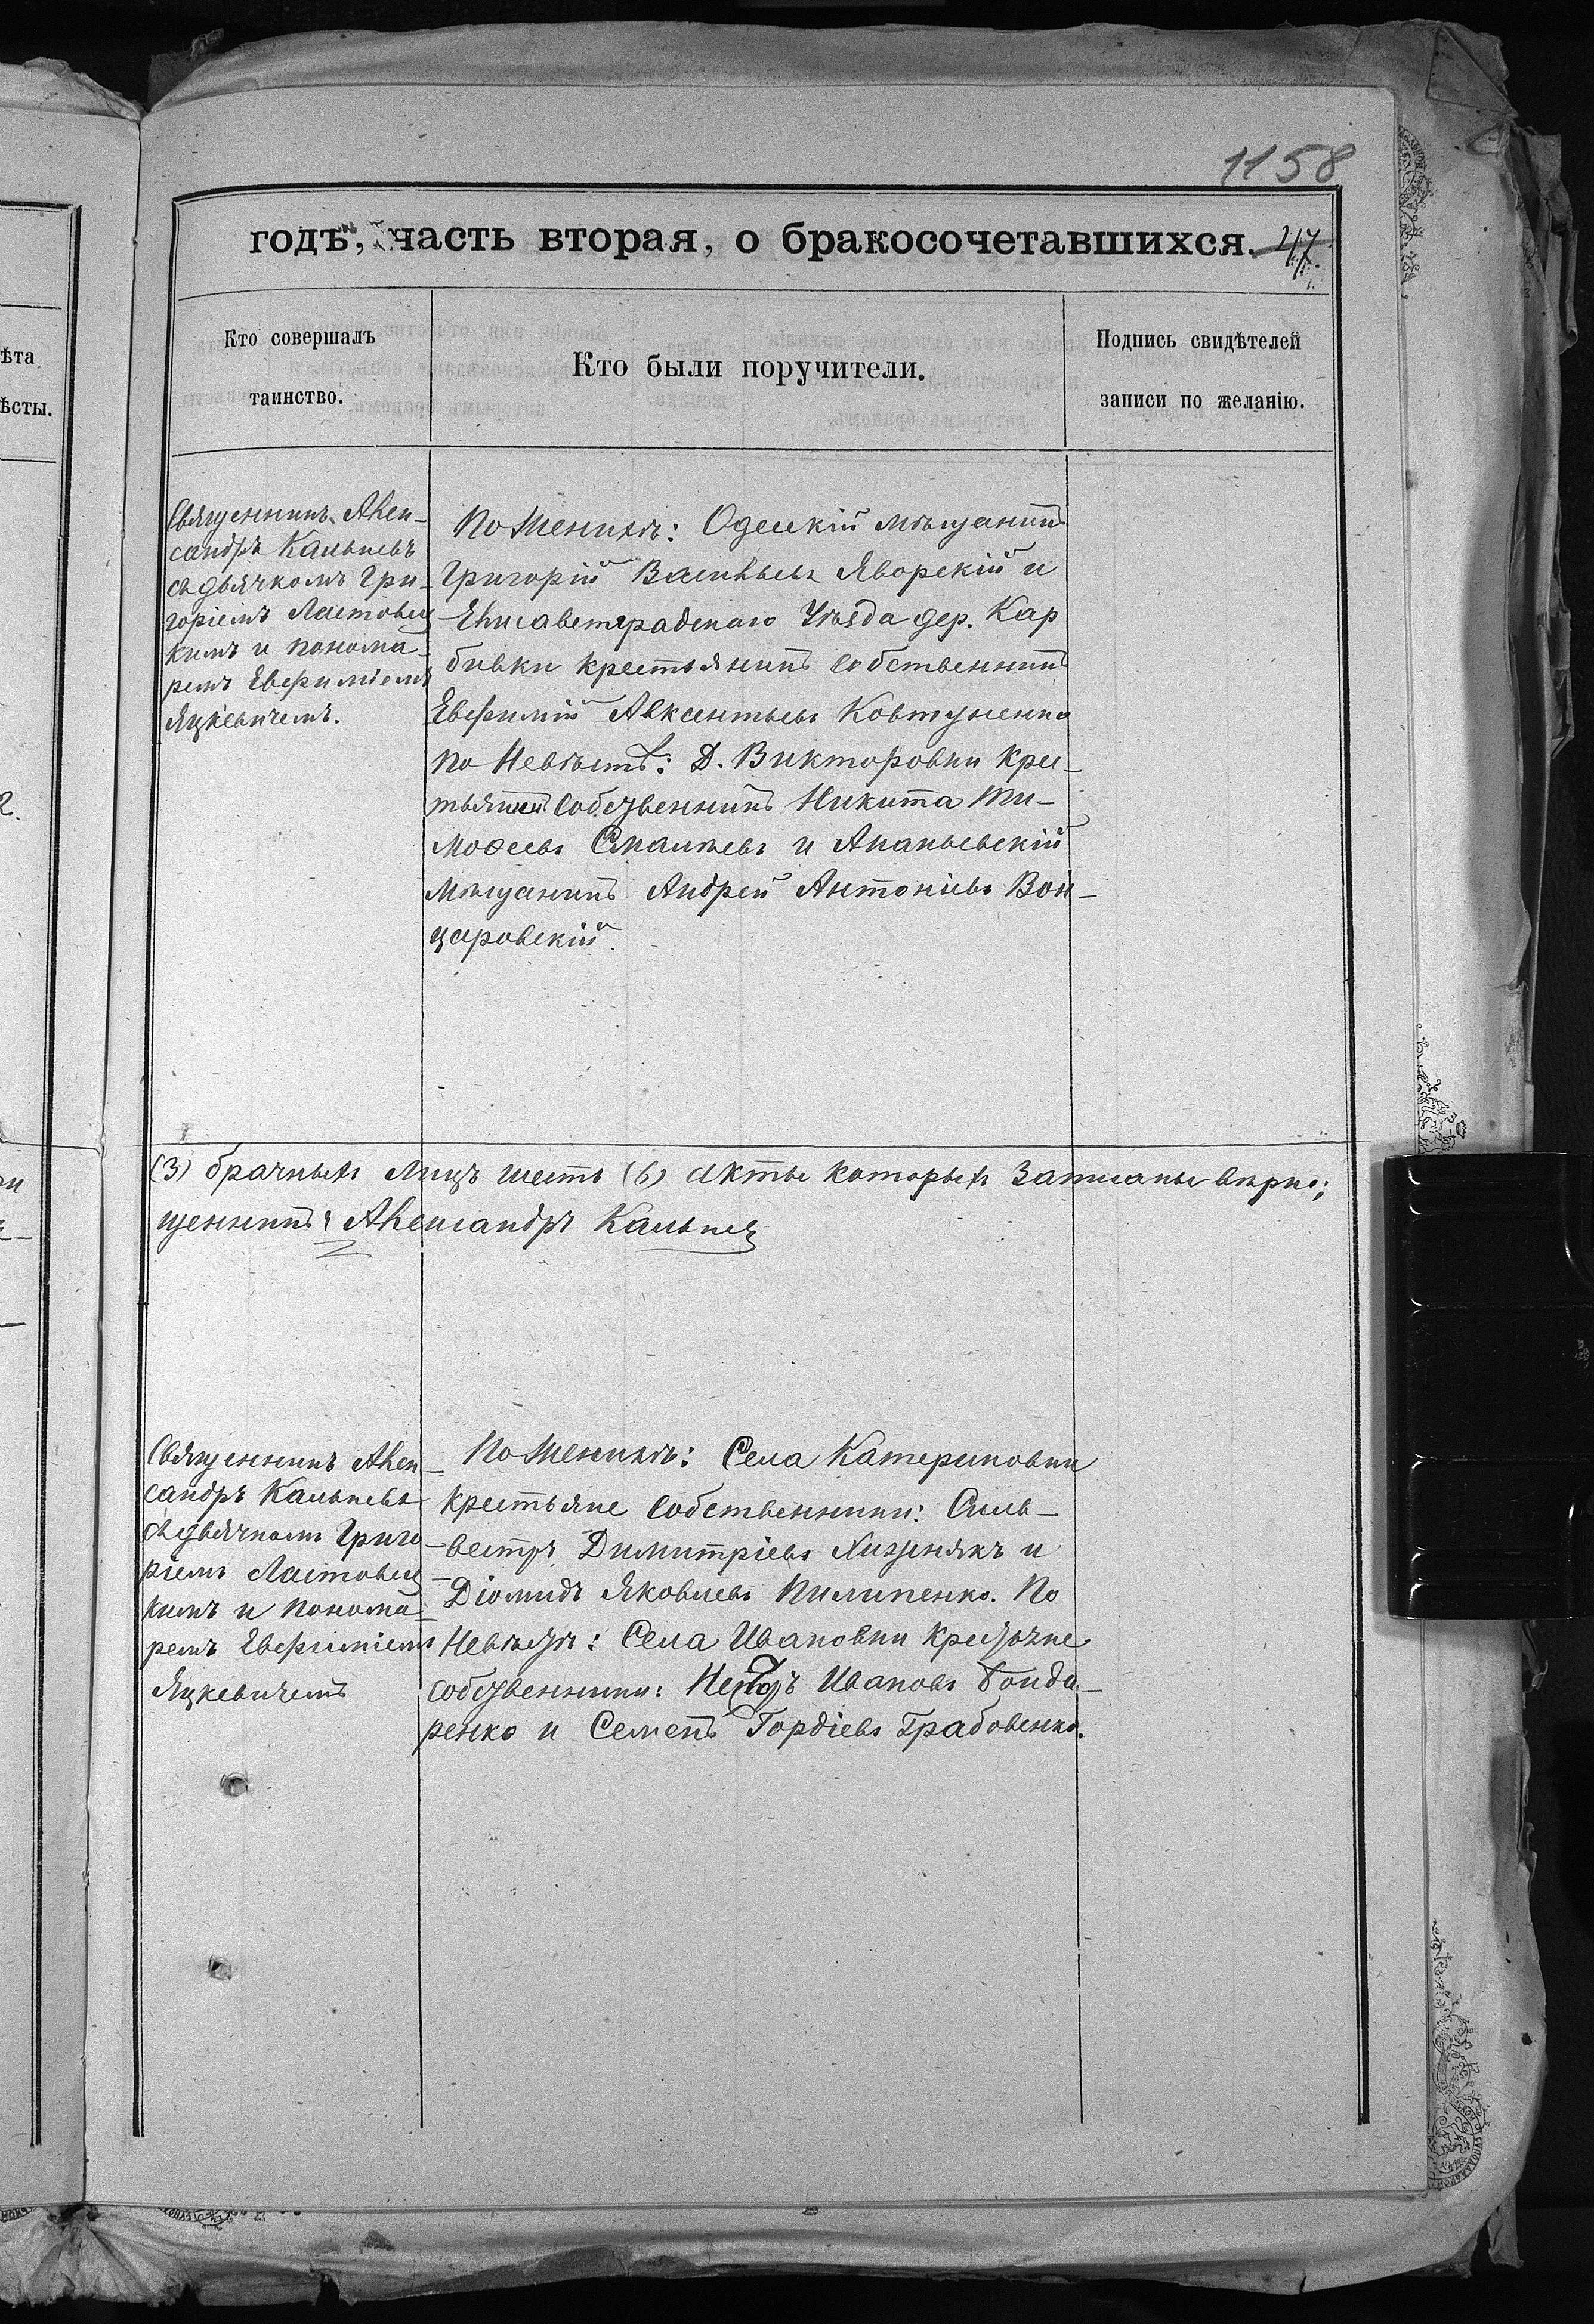 1158
годѣ, часть вторая, о бракосочетавшихся.
47
Кто совершалъ
таинство.
Кто были поручители.
Подпись свидѣтелей
записи по желанію.
ѣта
ѣсты.
Священникъ Алек-
сандръ Кальневъ
съ дьячкомъ Гри-
горіемъ Ластовец
кимъ и понома-
ремъ Евфиміемъ
Яцкевичемъ.
По Женихѣ: Одесскій мѣщанинъ
Григорій Васильевъ Яворскій и
Елисаветградскаго Уѣзда дер. Кар
бивки крестьянинъ собственникъ
Евфимій Авксентьевъ Ковтуненко
по Невѣстѣ: Д. Викторовки Крес-
тьянинъ Собственникъ Никита Ти-
мофеевъ и Ананьевскій
Мѣщанинъ Андрей Антоніевъ Вои-
царовскій.
(3) брачныхъ Лицъ шесть (6) акты которыхъ Записаны вѣрно;
щенникъ Александръ Кальнев
Священникъ Алек-
сандръ Кальневъ
съ дьячкомъ Григо-
ріемъ Ластовец
кимъ и понома-
ремъ Евфиміемъ
Яцкевичемъ
По Женихѣ: Села Катериновки
Крестьяне Собственники: Силь-
вестръ Димитріевъ Хизнякъ и
Діомидъ Яковлевъ Пилипенко. По
Невѣстѣ: Села Ивановки Крестьяне
собственники: Ивановъ Бонда-
ренко и Семенъ Гордіевъ Грабовенко.